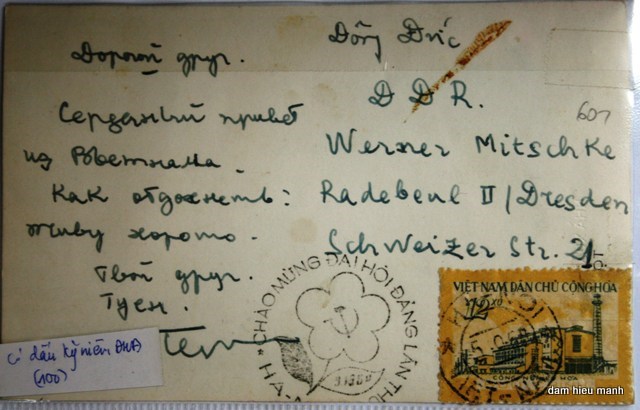 Дорогой друг.
Сердечный привет
из Вьетнама.
Как отдохнеть:
живу хорошо.
Твой друг.
Туен.
Đông Đức
D D R.
601
Werner Mitschke
Radebeul II / Dresden
Schweizer Str. 21
CHÀO MỪNG ĐẠI HỘI ĐẢNG LẦN THỨ
HÀ-
9.1960
VIỆT NAM DÂN CHỦ CỘNG HÒA
12 xu
HANOI
VIET-NAM
Có dấu kỷ niệm
(100)
dam hieu manh